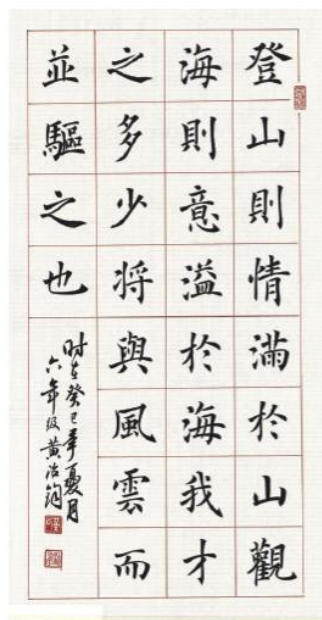 登山則情滿於山觀
海則意溢於海我才
之多少将與風雲而
並驅之也
时在癸巳年夏月
六年级黄治钧